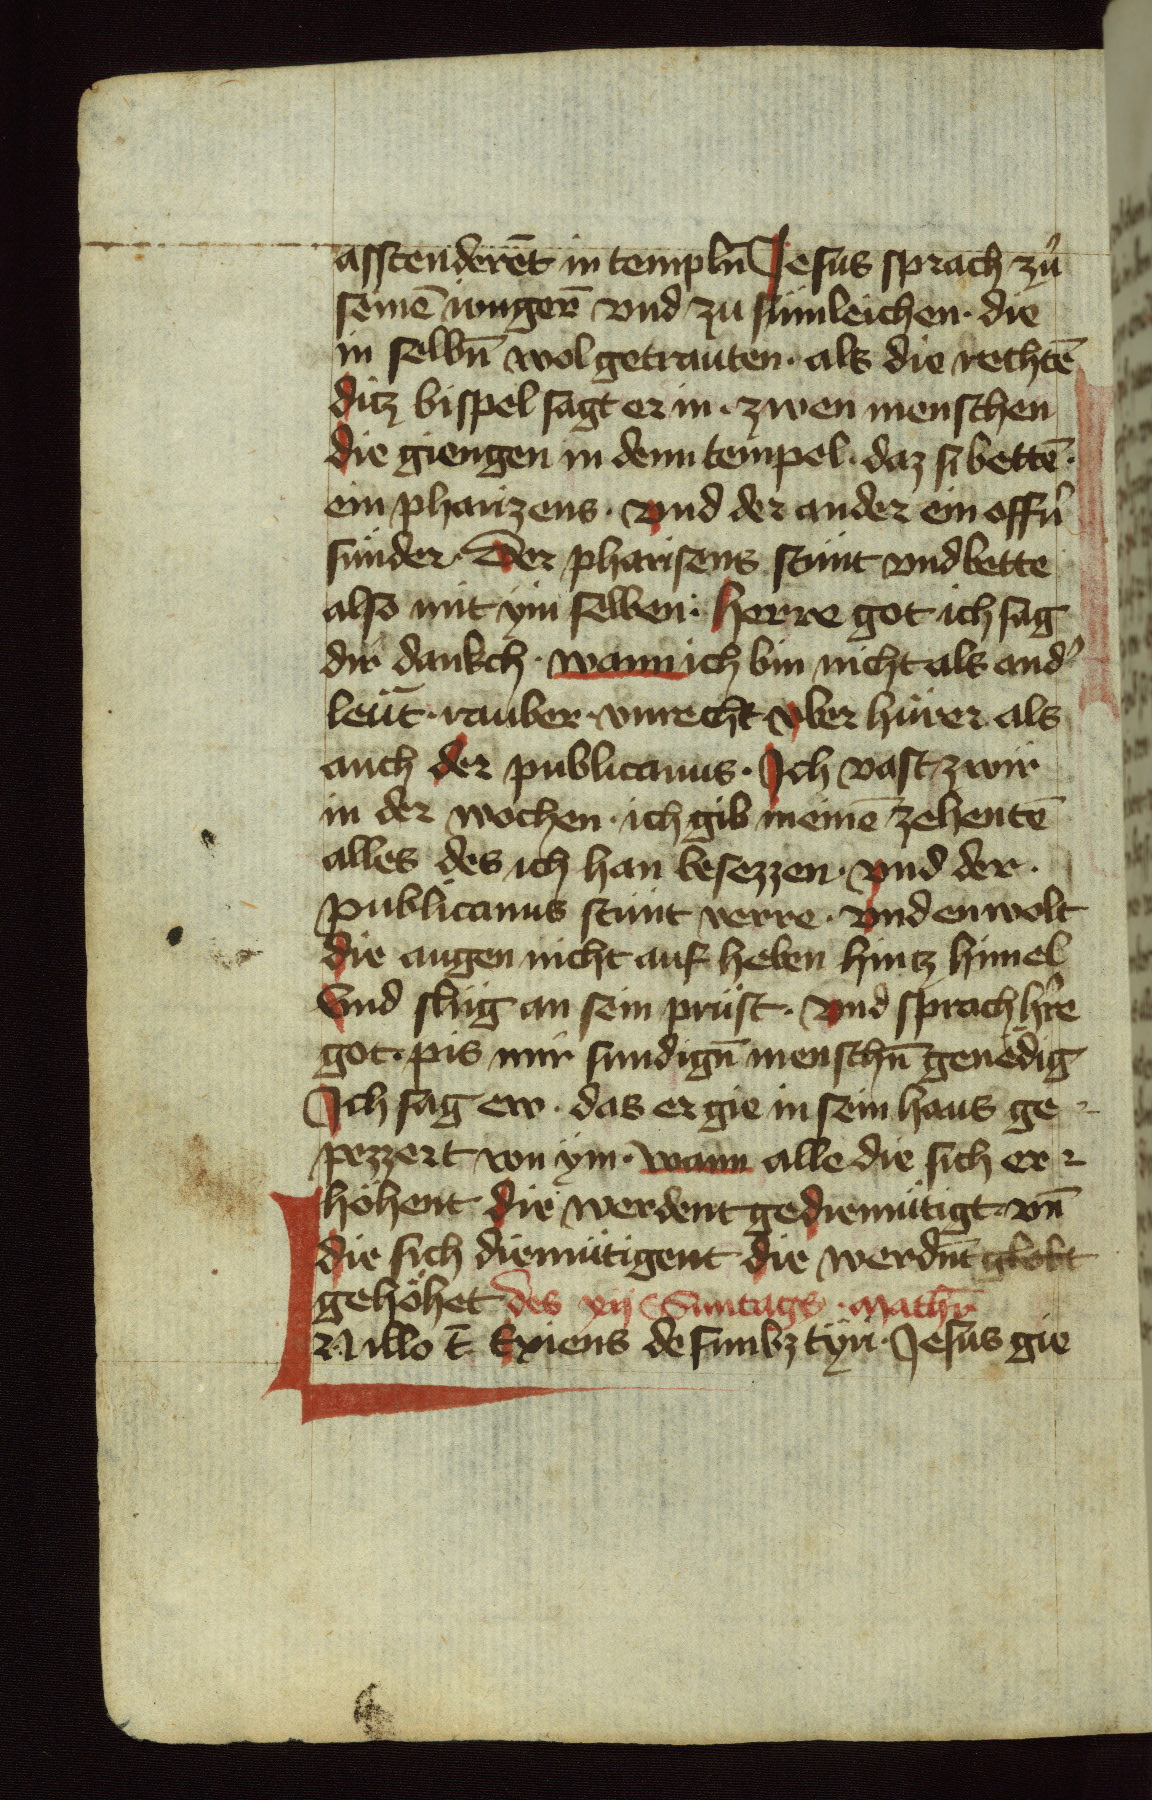 asstenderēt in templū Jesus sprach zů
seinē iungerē vnd zu sümleichen · die
in selbn̄ wol getrauten · als die rechtē
ditz bispel sagt er in · zwen menschen
die giengen in denn tempel · daz si bettē ·
ein pharizeus · vnd der ander ein offn̄
sünder · Der phariseus stůnt vnd bette
also mit ym selben · herre got ich sag
dir dankch · wann ich bin nicht als and͛
leüt · rauber · vnrecht vber hürer als
auch der publicanus · Ich vast zwir
in der wochen · ich gib meinē zehentē
alles des ich han besezzen · vnd der ·
publicanus stůnt verre · vnd en wolt
die augen nicht auf heben hintz himel
Vnd slůg an sein prüst · vnd sprach h͛re
got · pis mir sundign̄ menschn̄ genedig
Ich sag ew · das er gie in sein haus ge
pezzert von ym · wann alle die sich er
höhent die werdent gediemütigt · vn̄
die sich diemütigent die werdn̄t globt
gehöhet des xij Suntags · math̄
IN illo t̄ Exiens de finibz tyri · Jesus gie